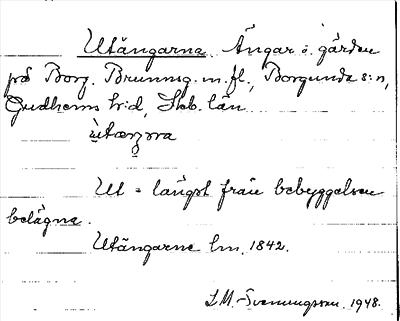 Utängarna Ängar o. gärden
på Borg. Brunnsg. m. fl., Borgunda s:n,
Gudhems h:d, Skb. län
ùtæŋɔra
Ut = längst från bebyggelsen
belägna.
Utängarne lm. 1842.
L.M. Svenungsson. 1948.